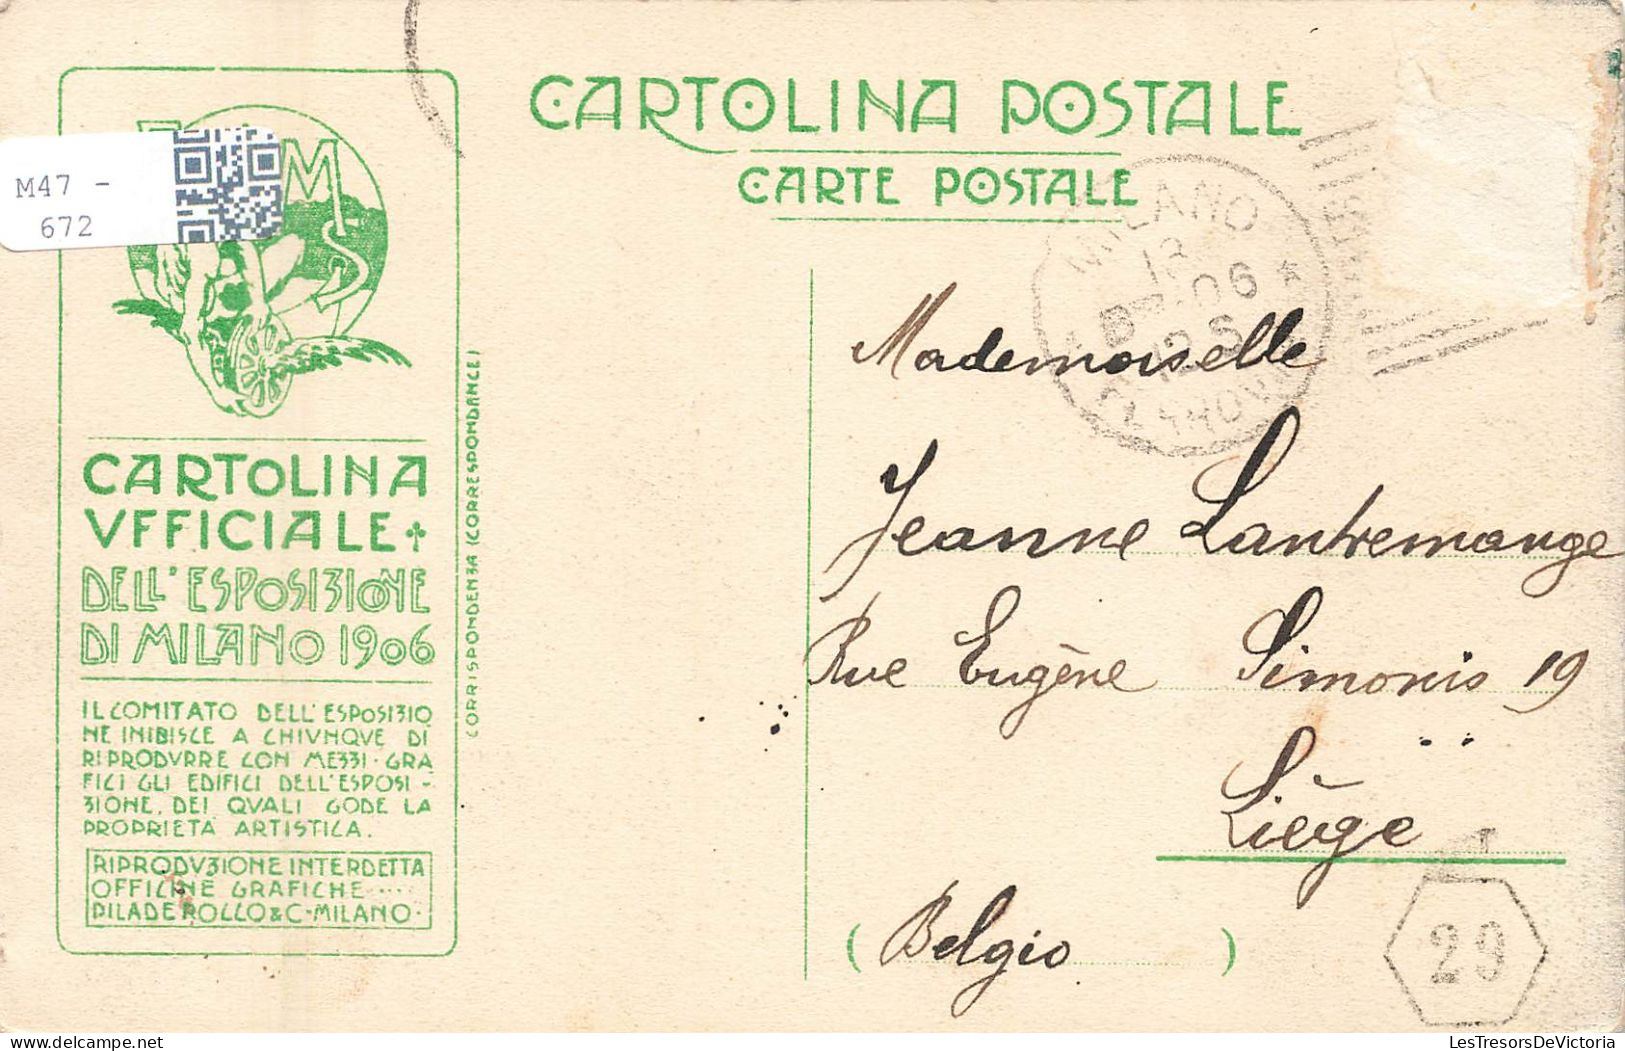 CARTOLINA POSTALE
CARTE POSTALE
M47 -
672
MS
CARTOLINA
VFFICIALE
DELL'ESPOSIZIONE
DI MILANO 1906
IL COMITATO DELL'ESPOSIZIO
NE INIBISCE A CHIVNQVE DI
RIPRODVRRE CON MEZZI·GRA
FICI GLI EDIFICI DELL'ESPOSI-
ZIONE, DEI QVALI GODE LA
PROPRIETA ARTISTICA.
RIPRODVZIONE INTERDETTA
OFFICINE GRAFICHE ····
PILADE ROLLO & C·MILANO·
CORRISPONDENZA (CORRESPONDANCE)
MILANO
06
12 S
Mademoiselle
Jeanne Lantremange
Rue Eugène Simonis 19
Liège
(Belgio)
29
LesTresorsDeVictoria
www.delcampe.net